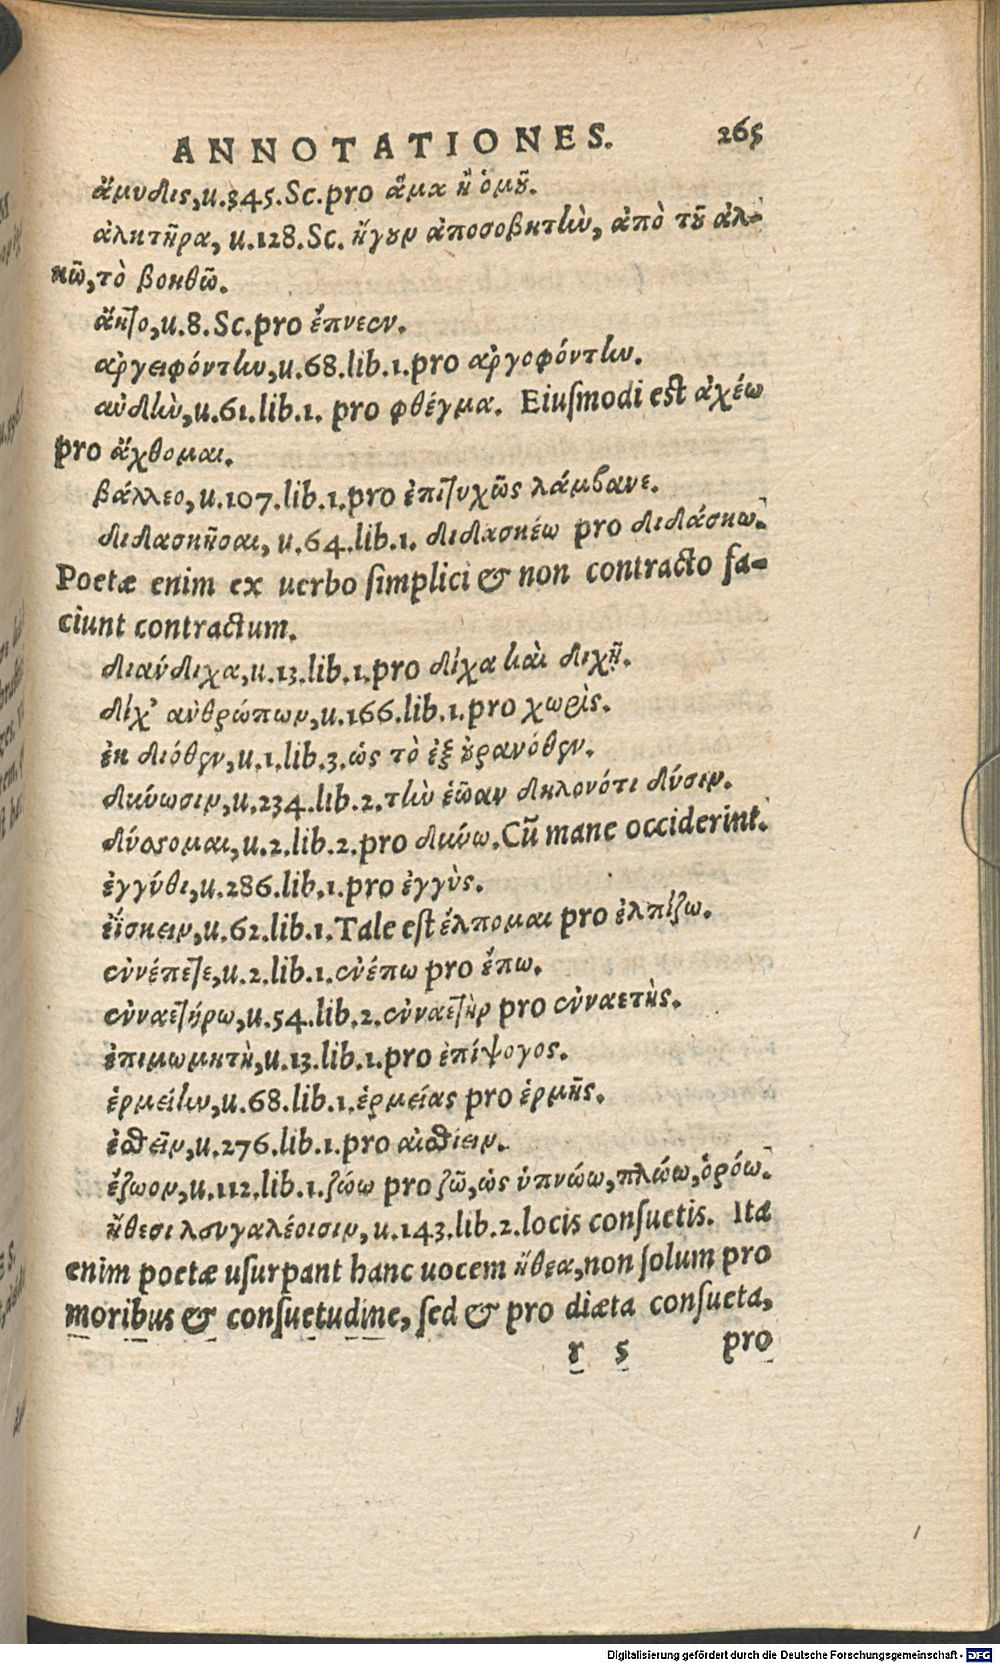 ANNOTATIONES. 265
ἄμυδις, u.345.Sc.pro ἅμα ἢ ὁμοῦ.
ἀλητῆρα, u.128.Sc. ἤγουν ἀποσοβητὴν, ἀπὸ τοῦ ἀλ-
κῶ, τὸ βοηθῶ.
ἄητο, u.8.Sc.pro ἔπνεον.
ἀργειφόντην, u.68.lib.1.pro ἀργοφόντην.
αὐδὴν, u.61.lib.1. pro φθέγμα. Eiusmodi est ἀχέω
pro ἄχθομαι.
βάλλεο, u.107.lib.1.pro ἐπιτυχῶς λάμβανε.
διδασκῆσαι, u.64.lib.1. διδασκέω pro διδάσκω.
Poetæ enim ex uerbo simplici & non contracto fa-
ciunt contractum.
διάνδιχα, u.13.lib.1.pro δίχα καὶ διχῆ.
δίχ' ἀνθρώπων, u.166.lib.1.pro χωρίς.
ἐκ διόθεν, u.1.lib.3.ὡς τὸ ἐξ οὐρανόθεν.
δικύωσιν, u.234.lib.2.τὴν ἑῶαν δηλονότι δύσιν.
δύσομαι, u.2.lib.2.pro δικύω. Cũ mane occiderint.
ἐγγύθι, u.286.lib.1.pro ἐγγὺς.
ἐΐσκειν, u.62.lib.1.Tale est ἔλπομαι pro ἐλπίζω.
ἐννέπετε, u.2.lib.1.ἐννέπω pro ἔπω.
ἐνναετήρω, u.54.lib.2.ἐνναετὴρ pro ἐνναετὴς.
ἐπιμωμητὴ, u.13.lib.1.pro ἐπίψογος.
ἑρμείην, u.68.lib.1.ἑρμείας pro ἑρμῆς.
ἐσθεῖν, u.276.lib.1.pro αἰσθίειν.
ἔζωον, u.112.lib.1.ζώω pro ζῶ, ὡς ὑπνώω, πλώω, ὁρόω.
ἤθεσι λευγαλέοισιν, u.143.lib.2.locis consuetis. Itæ
enim poetæ usurpant hanc uocem ἤθεα, non solum pro
moribus & consuetudine, sed & pro diæta consueta,
r 5 pro
Digitalisierung gefördert durch die Deutsche Forschungsgemeinschaft - DFG